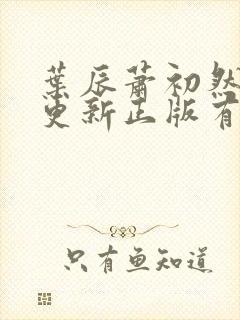 葉辰蕭初然
更新正版有
只有鱼知道